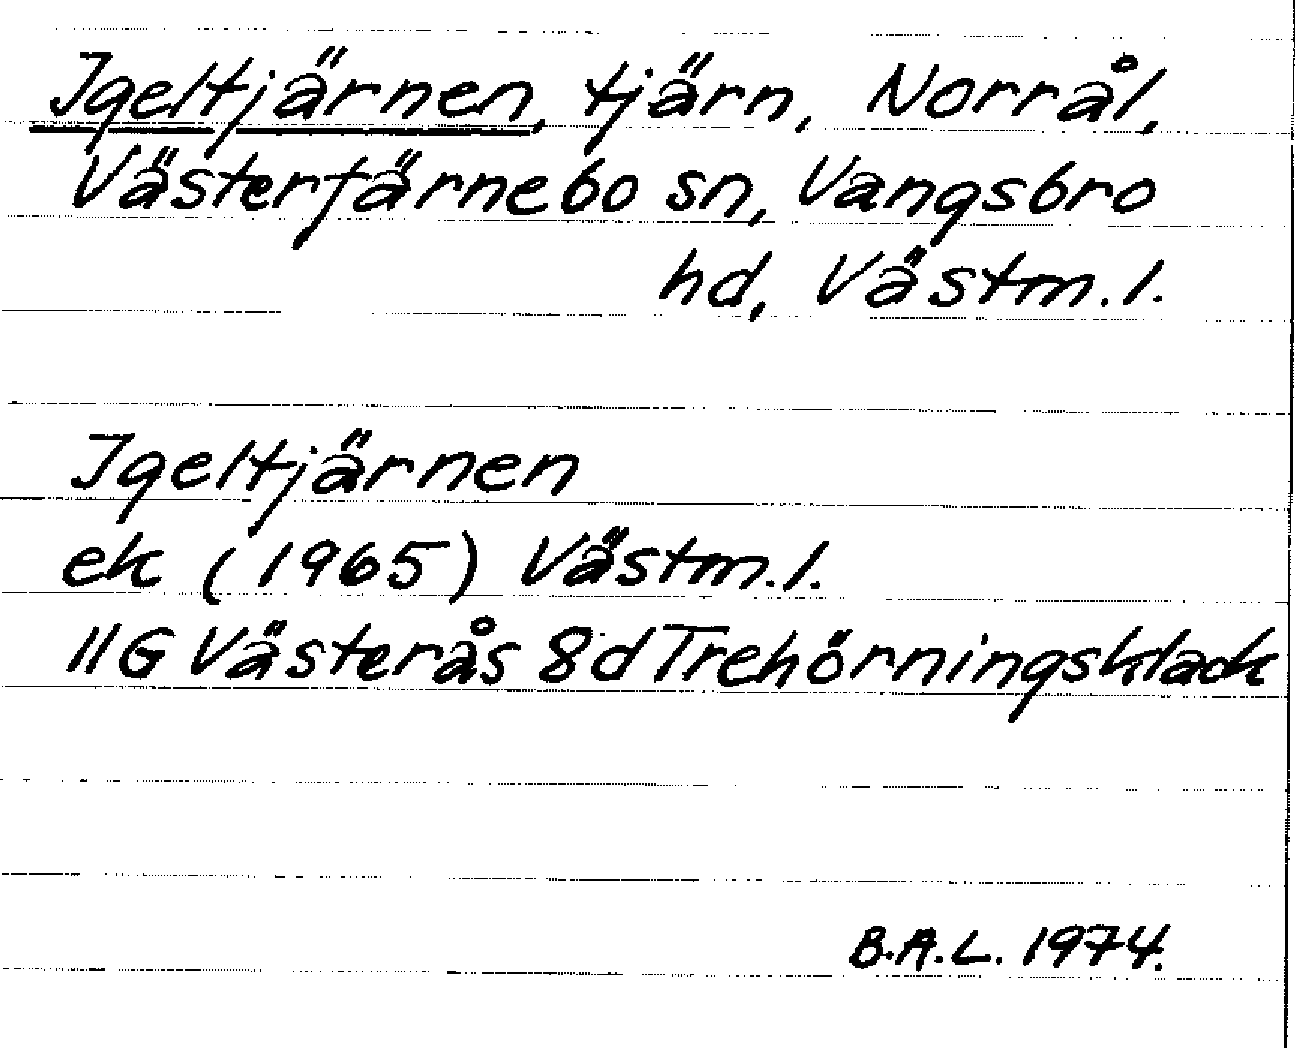 Igeltjärnen, tjärn, Norrål,
Västerfärnebo sn, Vangsbro
hd, Västm. l.
Igeltjärnen
ek (1965) Västm. l.
11G Västerås 8d Trehörningsklack
B.A.L. 1974.